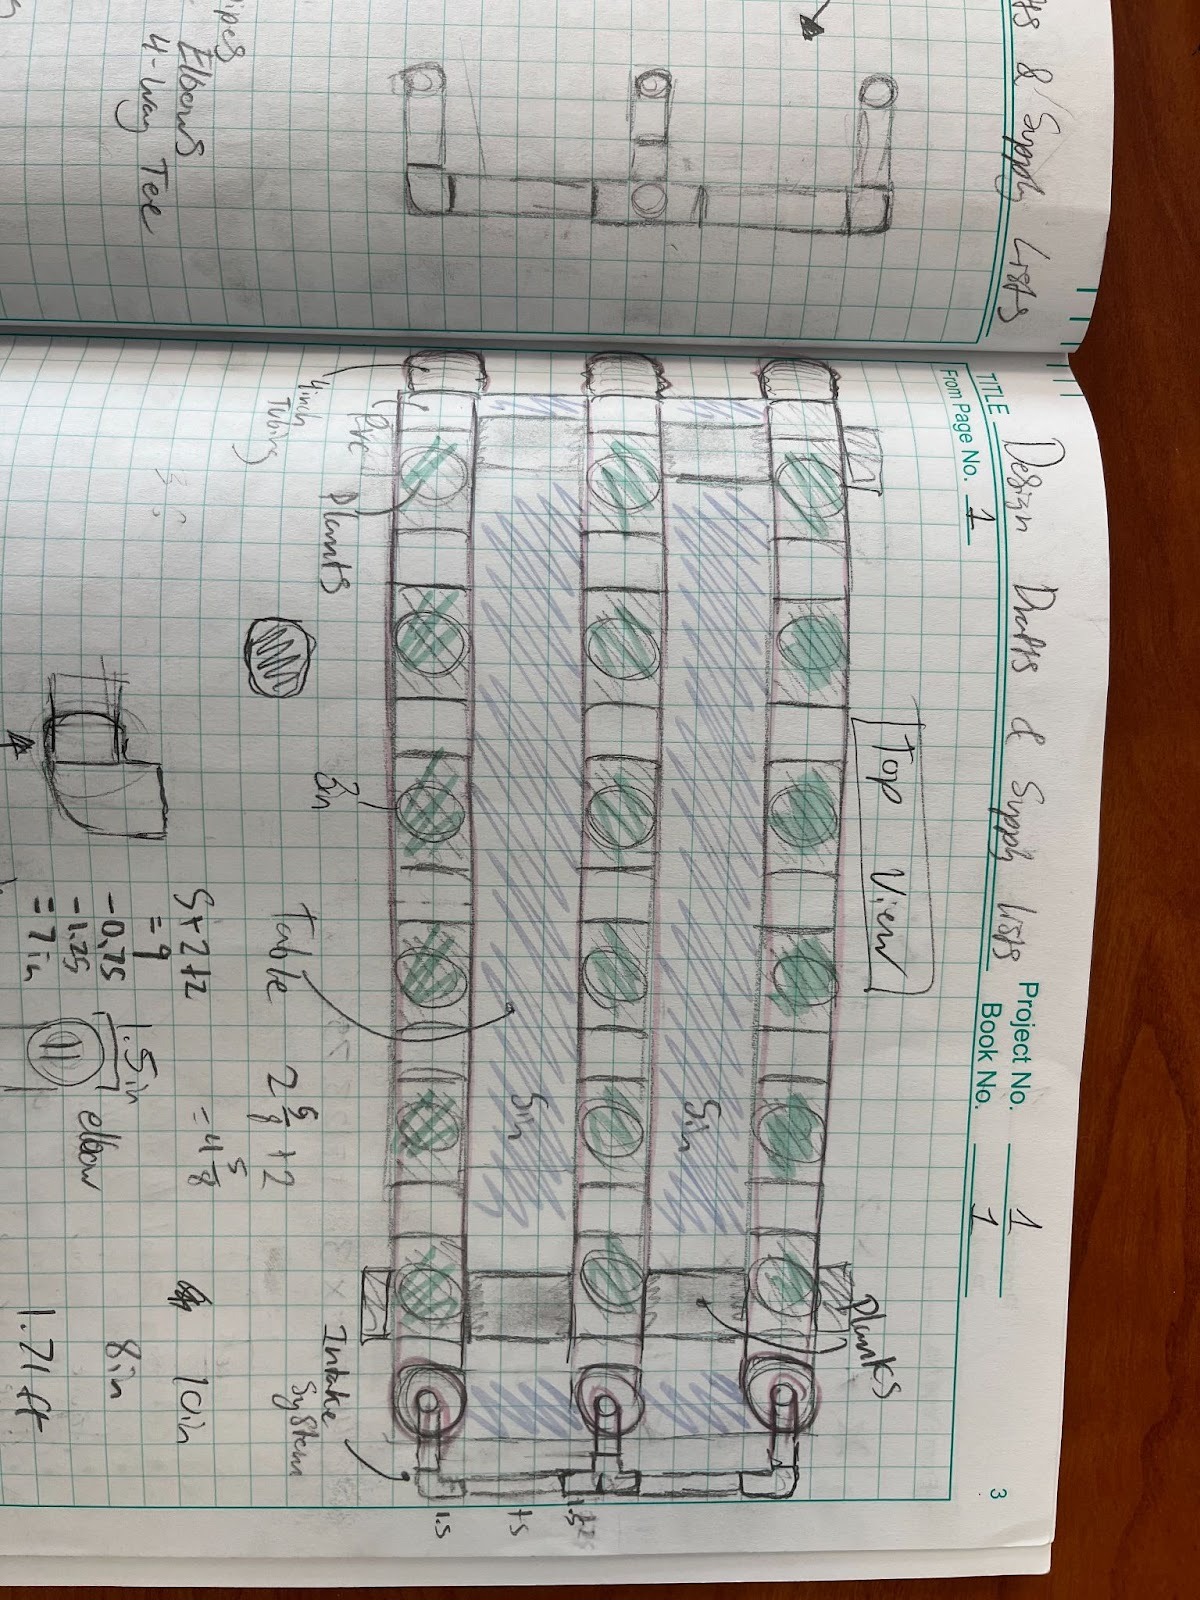 & Supply Lists
Elbows
4-way Tee
TITLE Design Drafts & Supply Lists
Project No. 1
Book No. 1
From Page No. 1
3
Top View
Planks
5in
5in
4inch
Tubing
Plants
3in
Table
Intake
System
5+2+2
= 9
-0.75
-1.25
= 7in
1.5in
elbow
2 5/8 + 2
= 4 5/8
10in
8in
1.71 ft
1.5